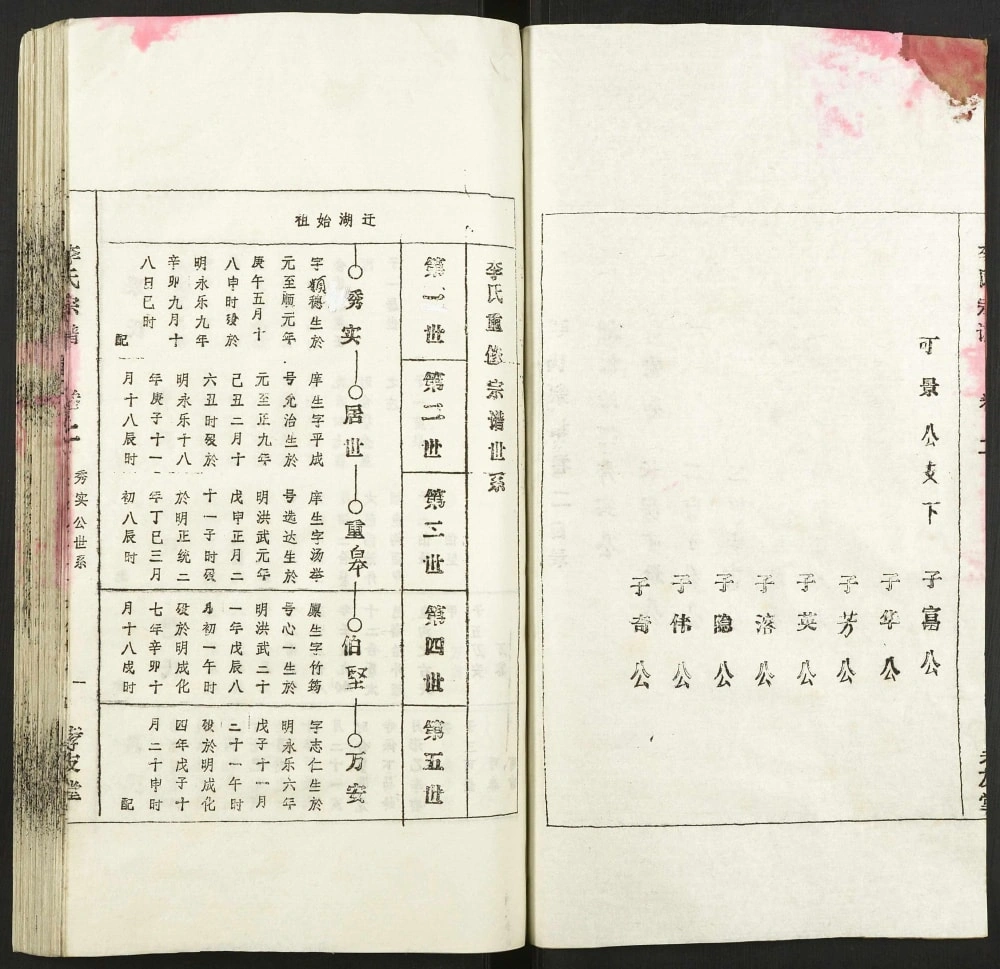 可景公支下
子富公
子华公
子芳公
子英公
子溶公
子隐公
子伟公
子奇公
李氏重修宗谱世系
迁湖始祖
第一世
第二世
第三世
第四世
第五世
秀实
居世
重皋
伯坚
万安
字顯德生於
元至顺元年
庚午五月十
八申时殁於
明永乐九年
辛卯九月十
八日巳时
配
庠生字平成
号允治生於
元至正九年
己丑二月十
六丑时殁於
明永乐十八
年庚子十一
月十八辰时
庠生字汤举
号选达生於
明洪武元年
戊申正月二
十一子时殁
於明正统二
年丁巳三月
初八辰时
廩生字竹筠
号心一生於
明洪武二十
一年戊辰八
月初一午时
殁於明成化
七年辛卯十
月十八戌时
字志仁生於
明永乐六年
戊子十一月
二十一午时
殁於明成化
四年戊子十
月二十申时
配
李氏宗谱
卷二
秀实公世系
一
孝友堂